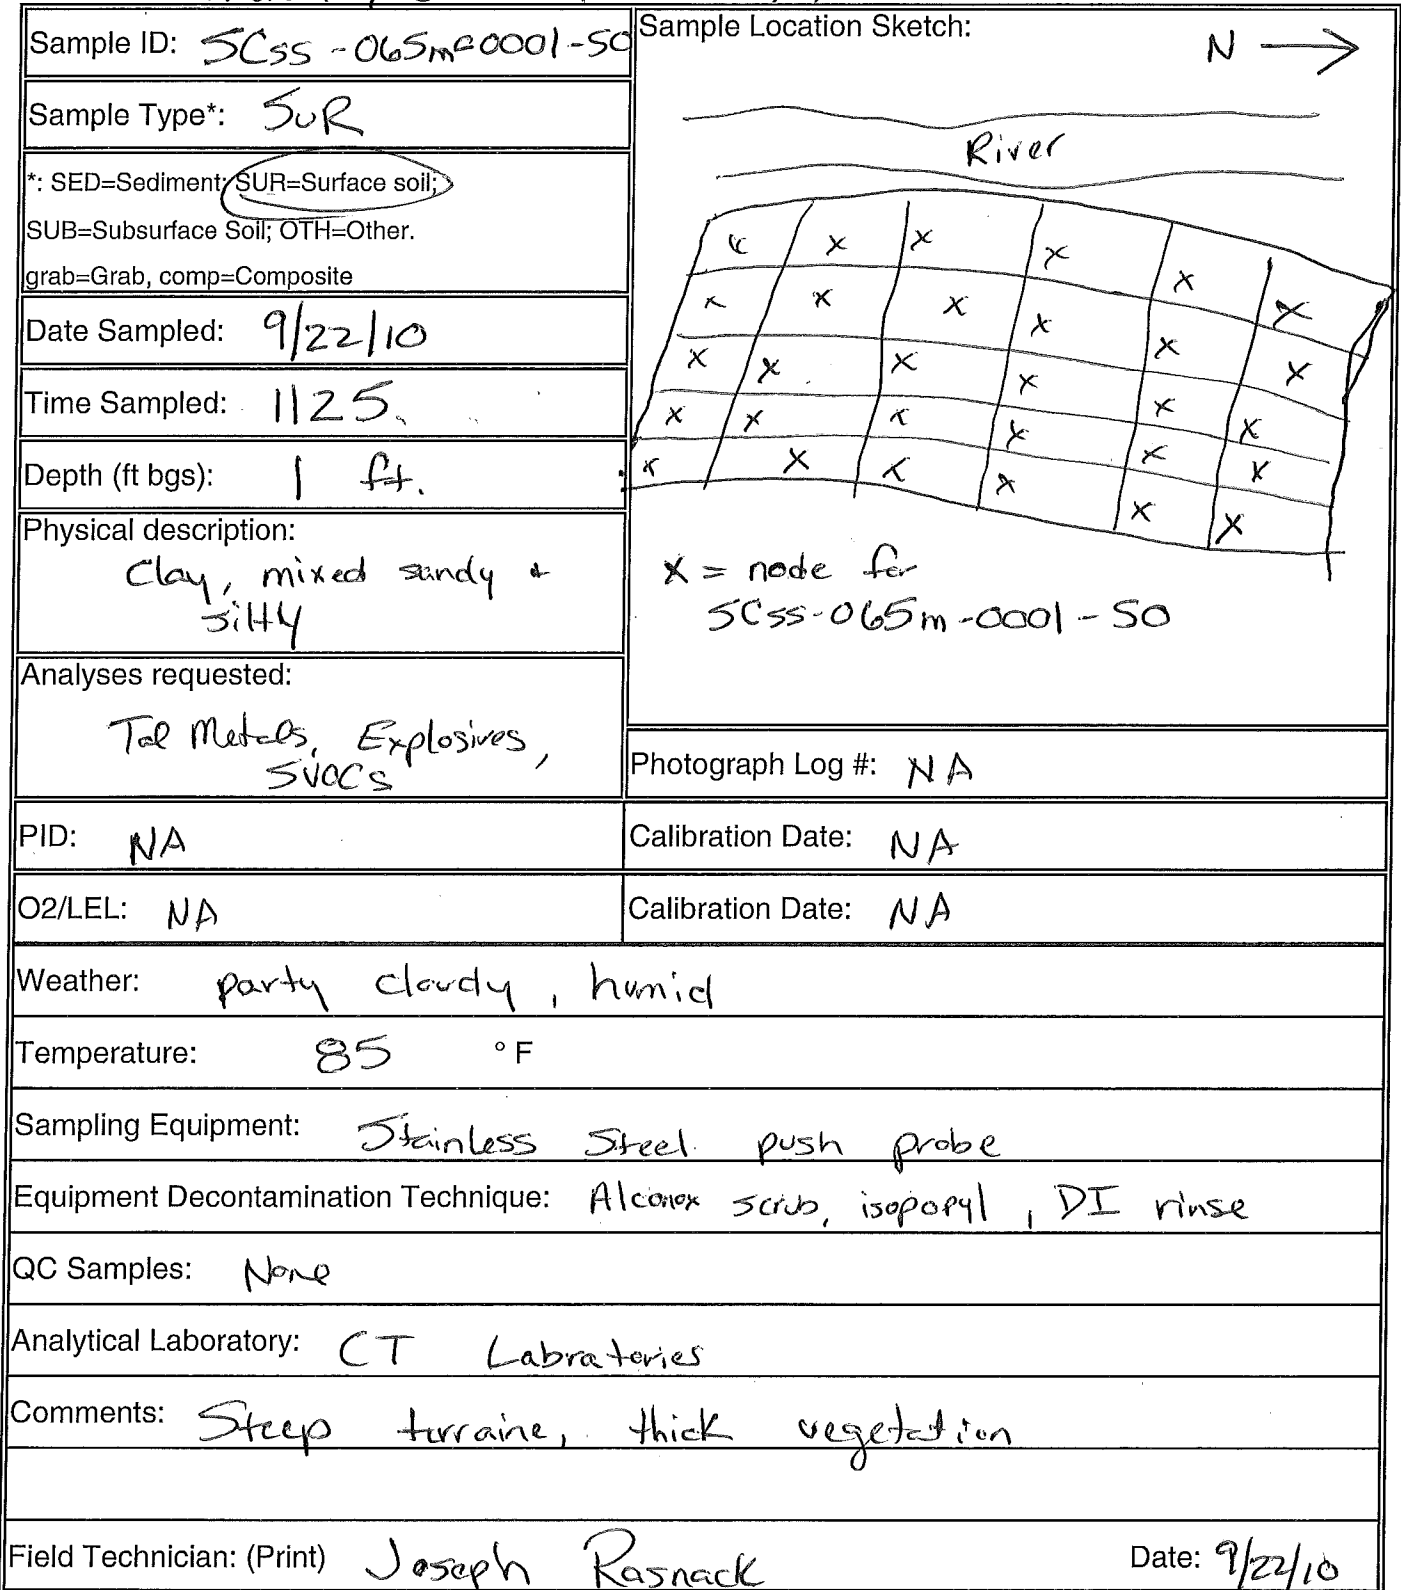 Sample ID: SCss-065m-0001-SO
Sample Type*: SUR
*: SED=Sediment; SUR=Surface soil;
SUB=Subsurface Soil; OTH=Other.
grab=Grab, comp=Composite
Date Sampled: 9/22/10
Time Sampled: 1125
Depth (ft bgs): 1 ft.
Physical description:
Clay, mixed sandy +
silty
Analyses requested:
Tal Metals, Explosives,
SVOCs
Sample Location Sketch:
N
River
x x x x x
x x x x x x
x x x x x x
x x x x x x
x x x x x x
x
X = node for
SCss-065m-0001-SO
Photograph Log #: NA
PID: NA
Calibration Date: NA
O2/LEL: NA
Calibration Date: NA
Weather: party cloudy, humid
Temperature: 85 °F
Sampling Equipment: Stainless Steel push probe
Equipment Decontamination Technique: Alconox scrub, isopopyl, DI rinse
QC Samples: None
Analytical Laboratory: CT Labratories
Comments: Steep terraine, thick vegetation
Field Technician: (Print) Joseph Rasnack Date: 9/22/10